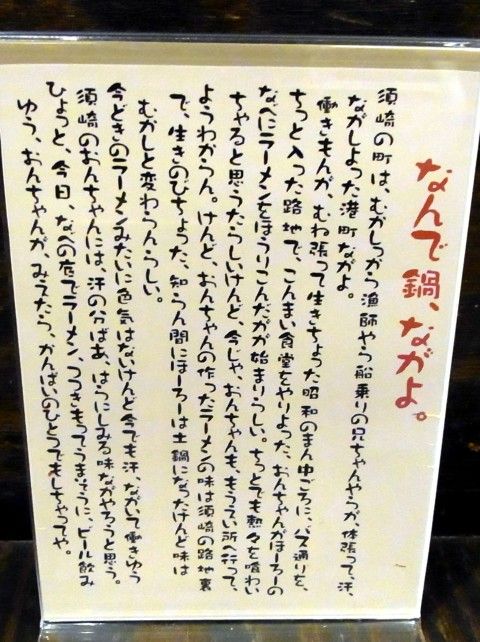 なんで鍋、ながよ。
須崎の町は、むかしから漁師やら船乗りの兄ちゃんやらが、体張って、汗、
ながしよった港町ながよ。
働きもんが、むね張って生きちょった昭和のまん中ごろに、バス通りを、
ちっと入った路地で、こんまい食堂をやりよった、おんちゃんがほーろーの
なべにラーメンをほうりこんだがが始まりらしい。ちっとでも熱々を喰わい
ちゃると思うたらしいけんど、今じゃ、おんちゃんも、もうえい所へ行って、
ようわからん。けんど、おんちゃんの作ったラーメンの味は須崎の路地裏
で、生きのびちょった、知らん間にほーろーは土鍋になったけんど味は
むかしと変わらんらしい。
今どきのラーメンみたいに色気はないけんど今でも汗、ながいて働きゆう
須崎のおんちゃんには、汗の分ばあ、はらにしみる味ながやろうと思う。
ひょっと、今日、なべの店でラーメン、つつきもってうまそうに、ビール飲み
ゆう、おんちゃんが、みえたら、かんぱいのひとつでもしちゃってや。